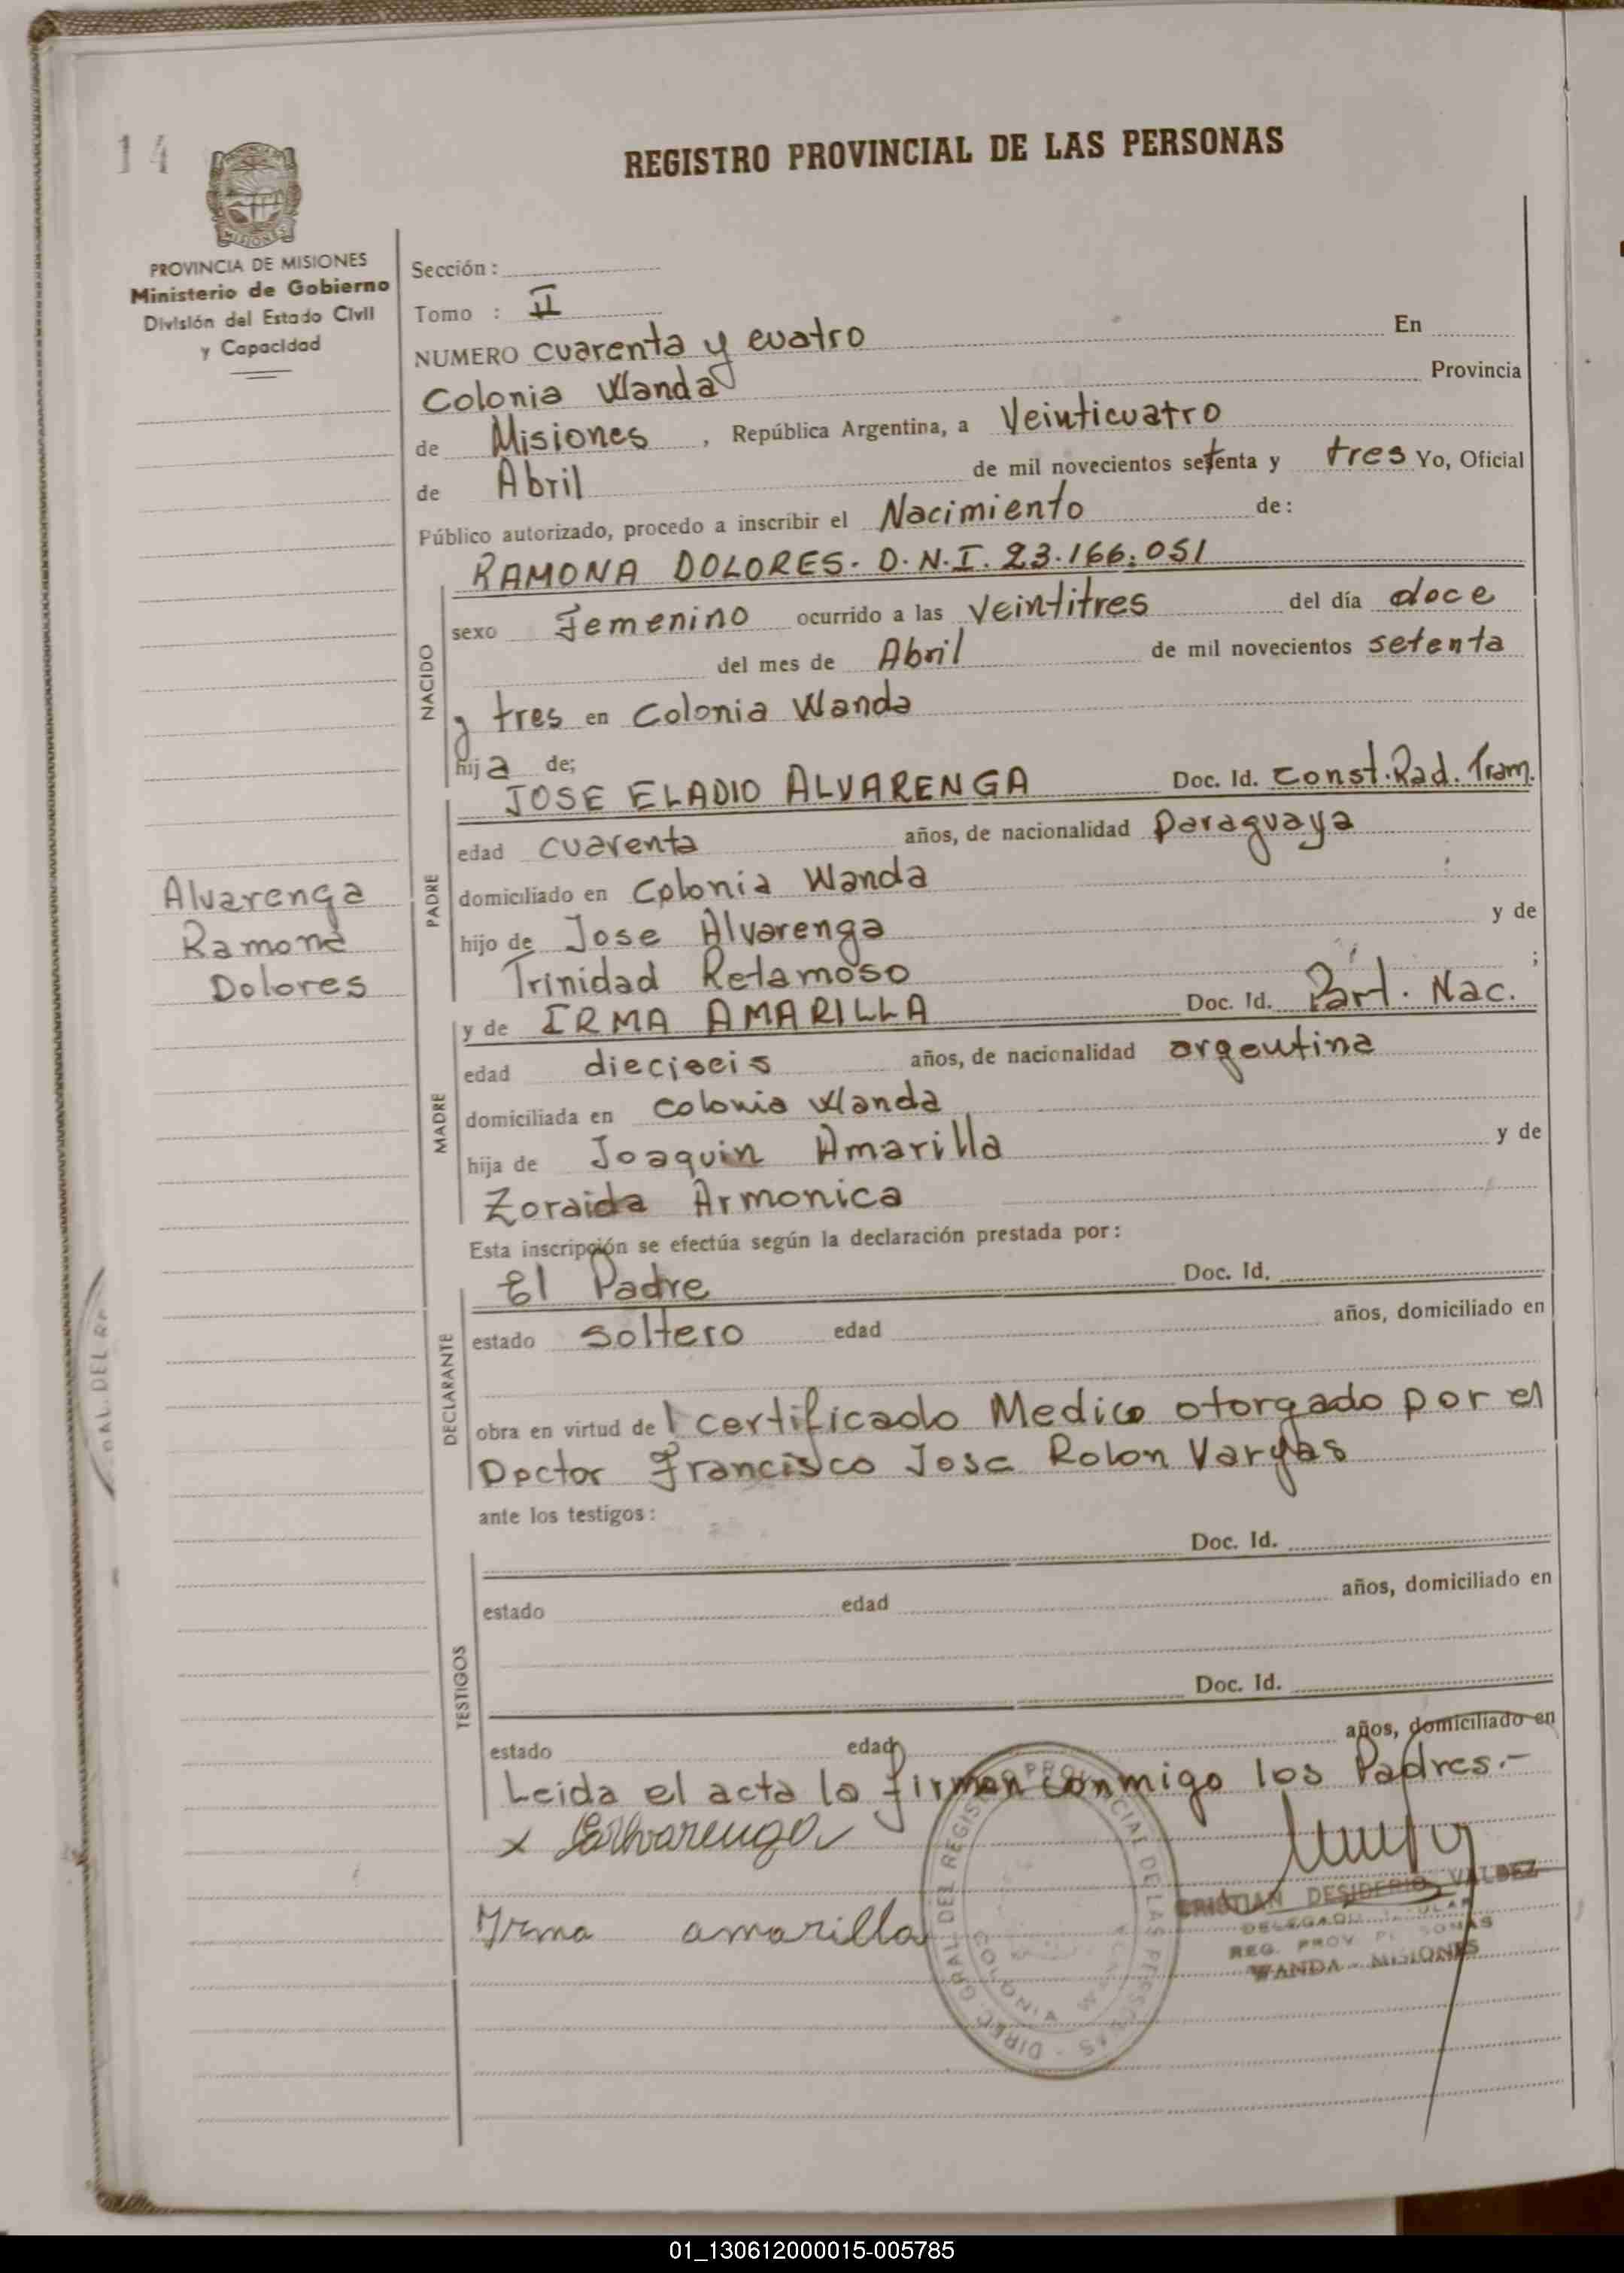 14
REGISTRO PROVINCIAL DE LAS PERSONAS
MISIONES
PROVINCIA DE MISIONES
Ministerio de Gobierno
División del Estado Civil
y Capacidad
Sección :
Tomo : II
NUMERO cuarenta y cuatro En
Colonia Wanda Provincia
de Misiones , República Argentina, a Veinticuatro
de Abril de mil novecientos setenta y tres Yo, Oficial
Público autorizado, procedo a inscribir el Nacimiento de:
RAMONA DOLORES. D.N.I. 23.166.051
NACIDO
sexo Femenino ocurrido a las veintitres del día doce
del mes de Abril de mil novecientos setenta
y tres en Colonia Wanda
hija de;
JOSE ELADIO ALVARENGA Doc. Id. Const. Rad. Tram.
PADRE
edad cuarenta años, de nacionalidad paraguaya
domiciliado en Colonia Wanda
hijo de Jose Alvarenga y de
Trinidad Retamoso ;
Alvarenga
Ramona
Dolores
y de IRMA AMARILLA Doc. Id. Part. Nac.
MADRE
edad dieciseis años, de nacionalidad argentina
domiciliada en colonia Wanda
hija de Joaquin Amarilla y de
Zoraida Armonica
Esta inscripción se efectúa según la declaración prestada por :
El Padre Doc. Id.
DECLARANTE
estado soltero edad años, domiciliado en
obra en virtud de 1 certificado Medico otorgado por el
Doctor Francisco Jose Rolon Vargas
ante los testigos :
Doc. Id.
TESTIGOS
estado edad años, domiciliado en
Doc. Id.
estado edad años, domiciliado en
Leida el acta la firman conmigo los Padres.-
x Alvarenga
Irma amarilla
DIREC. GRAL. DEL REGISTRO PROVINCIAL DE LAS PERSONAS -
COLONIA WANDA
CRISTIAN DESIDERIO VALDEZ
DELEGADO TITULAR
REG. PROV. PERSONAS
WANDA - MISIONES
01_130612000015-005785